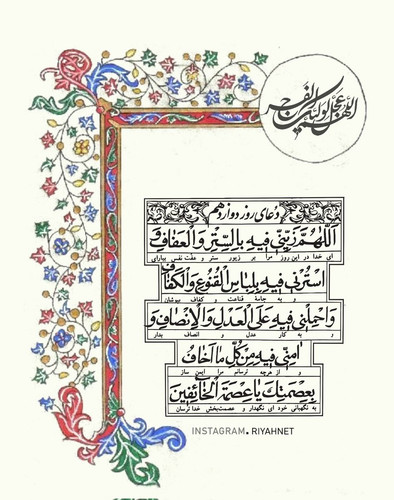 اللهم عجل لولیک الفرج
دعای روز دوازدهم
اَللّٰهُمَّ زَیِّنّی فیهِ بِالسِّتْرِ وَالْعَفافِ وَ
ای خدا در این روز مرا به زیور ستر و عفت نفس بیارای
اسْتُرْنی فیهِ بِلِباسِ الْقُنُوعِ وَالْکَفافِ
و به جامهٔ قناعت و کفاف بپوشان
وَاحْمِلْنی فیهِ عَلَی الْعَدْلِ وَالْاِنْصافِ وَ
و به کار عدل و انصاف بدار
امِنّی فیهِ مِنْ کُلِّ ما اَخافُ
و از هرچه ترسانم مرا ایمن ساز
بِعِصْمَتِکَ یا عِصْمَةَ الْخائِفینَ
به نگهبانی خود ای نگهدار و عصمت‌بخش خدا ترسان
INSTAGRAM. RIYAHNET